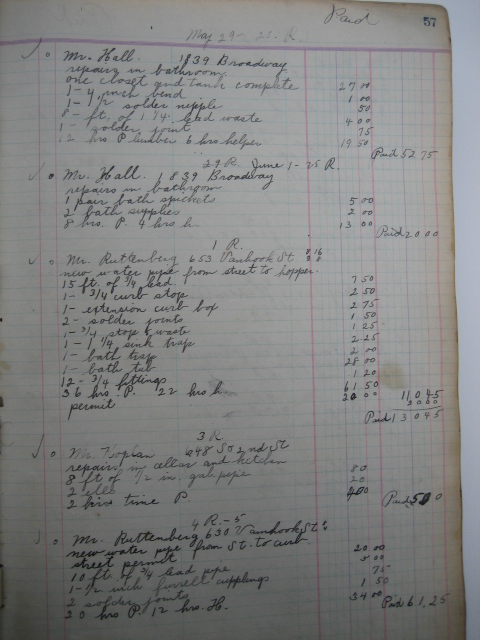 Paid 57
May 29 - 25. R.
Mr. Hall. 1839 Broadway
repairs in bathroom
one closet and tank complete 27 00
1 - 4 inch bend 1 00
1 - 1/2 solder nipple 50
8 - ft. of 1 1/4 lead waste 4 00
1 - solder joint 75
12 hrs Plumber 6 hrs helper 19 50
Paid 52 75
29 R. June 1 - 25 R.
Mr. Hall. 1839 Broadway
repairs in bathroom
1 pair bath spickets 5 00
2 bath supplies 2 00
8 hrs. P. 4 hrs h. 13 00
Paid 20 00
1 R.
Mr. Ruttenberg 653 Vanhook St
new water pipe from street to hopper.
15 ft. of 3/4 lead. 7 50
1 - 3/4 curb stop 2 50
1 - extension curb box 2 75
2 - solder joints 1 50
1 - 3/4 stop & waste 1 25
1 - 1 1/4 sink trap 2 25
1 - bath trap 2 00
1 - bath tub 28 00
12 - 3/4 fittings 1 20
36 hrs. P. 22 hrs h. 61 50
permit 20 00 110 45
Paid 130 45
3 R.
Mr. Koplan 648 So 2nd St
repairs in cellar and kitchen
8 ft of 1/2 in. gas pipe 80
2 ells 20
2 hrs time P. 4 00 Paid 5 00
4 R. - 5
Mr. Ruttenberg 630 Vanhook St.
new water pipe from St. to curb
street permit 20 00
10 ft. of 3/4 lead pipe 5 00
1 - 1/2 inch cupplings 75
2 solder joints 1 50
20 hrs P. 12 hrs. H. 34 00 Paid 61.25